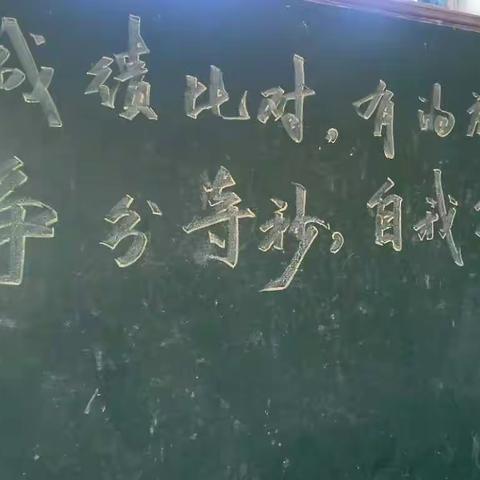 成绩比对,有的
争分夺秒,自我